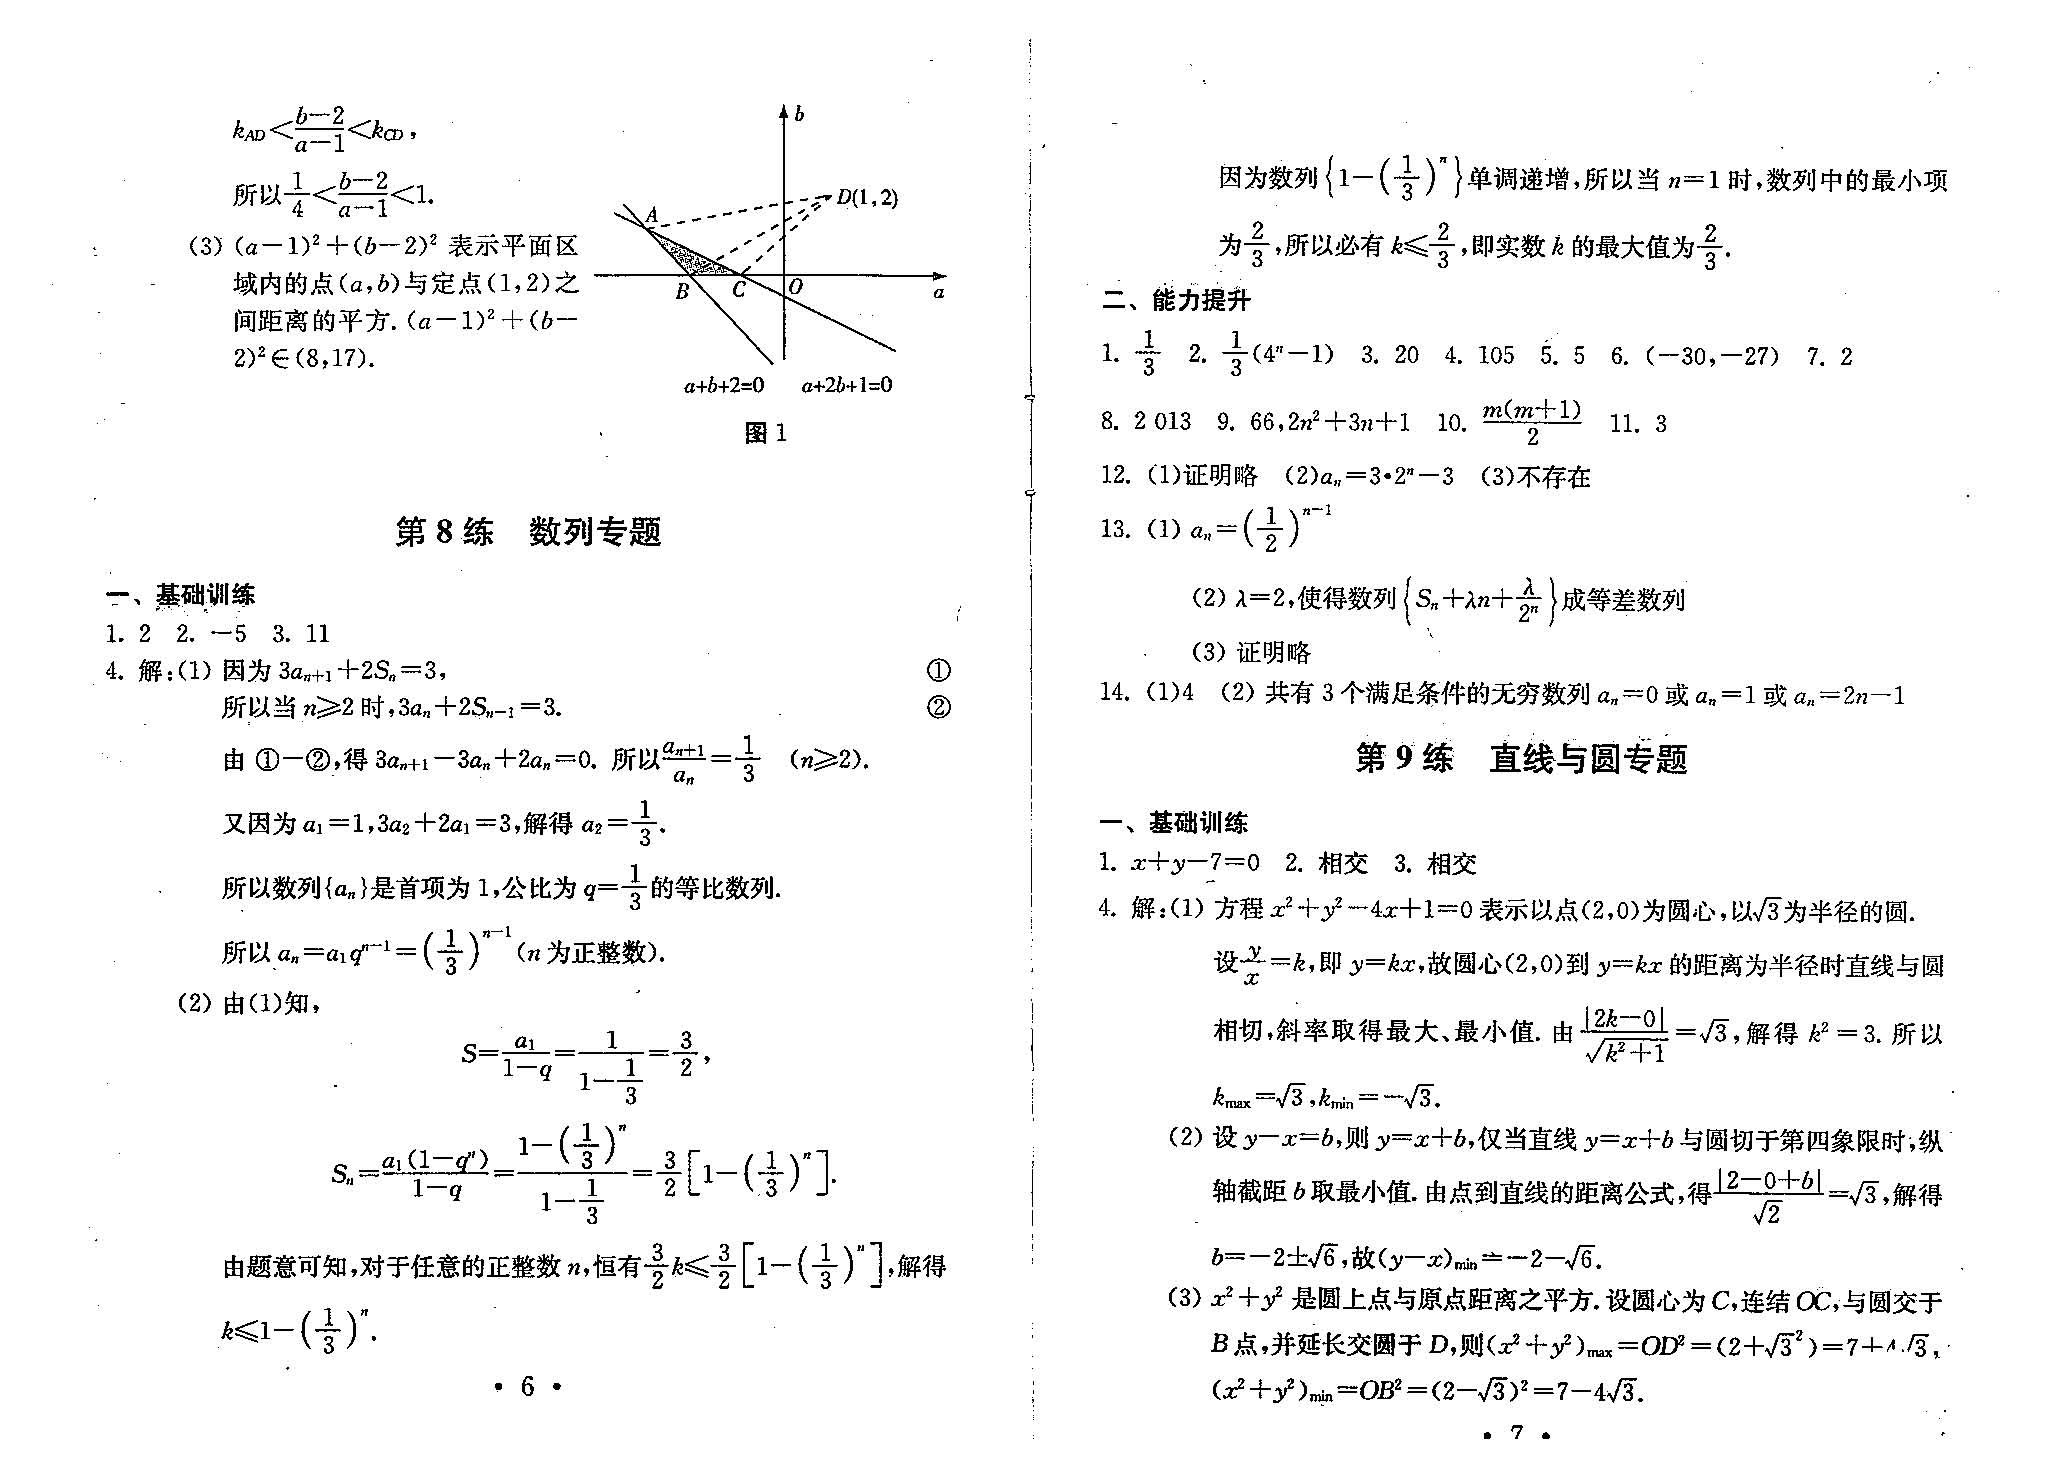 k_{AD}<\frac{b-2}{a-1}<k_{CD},
所以\frac{1}{4}<\frac{b-2}{a-1}<1.
(3) (a-1)²+(b-2)² 表示平面区
域内的点(a,b)与定点(1,2)之
间距离的平方. (a-1)²+(b-
2)²∈(8,17).
b
D(1,2)
A
B
C
O
a
a+b+2=0 a+2b+1=0
图 1
第 8 练 数列专题
一、基础训练
1. 2 2. -5 3. 11
4. 解:(1) 因为 3a_{n+1}+2S_n=3, ①
所以当 n≥2 时,3a_n+2S_{n-1}=3. ②
由 ①-②,得 3a_{n+1}-3a_n+2a_n=0. 所以\frac{a_{n+1}}{a_n}=\frac{1}{3} (n≥2).
又因为 a_1=1,3a_2+2a_1=3,解得 a_2=\frac{1}{3}.
所以数列{a_n}是首项为 1,公比为 q=\frac{1}{3}的等比数列.
所以 a_n=a_1q^{n-1}=(\frac{1}{3})^{n-1}(n 为正整数).
(2) 由(1)知,
S=\frac{a_1}{1-q}=\frac{1}{1-\frac{1}{3}}=\frac{3}{2},
S_n=\frac{a_1(1-q^n)}{1-q}=\frac{1-(\frac{1}{3})^n}{1-\frac{1}{3}}=\frac{3}{2}[1-(\frac{1}{3})^n].
由题意可知,对于任意的正整数 n,恒有\frac{3}{2}k≤\frac{3}{2}[1-(\frac{1}{3})^n],解得
k≤1-(\frac{1}{3})^n.
• 6 •
因为数列{1-(\frac{1}{3})^n}单调递增,所以当 n=1 时,数列中的最小项
为\frac{2}{3},所以必有 k≤\frac{2}{3},即实数 k 的最大值为\frac{2}{3}.
二、能力提升
1. \frac{1}{3} 2. \frac{1}{3}(4^n-1) 3. 20 4. 105 5. 5 6. (-30,-27) 7. 2
8. 2 013 9. 66,2n²+3n+1 10. \frac{m(m+1)}{2} 11. 3
12. (1)证明略 (2)a_n=3•2^n-3 (3)不存在
13. (1) a_n=(\frac{1}{2})^{n-1}
(2) λ=2,使得数列{S_n+λn+\frac{λ}{2^n}}成等差数列
(3) 证明略
14. (1)4 (2) 共有 3 个满足条件的无穷数列 a_n=0 或 a_n=1 或 a_n=2n-1
第 9 练 直线与圆专题
一、基础训练
1. x+y-7=0 2. 相交 3. 相交
4. 解:(1) 方程 x²+y²-4x+1=0 表示以点(2,0)为圆心,以√3为半径的圆.
设\frac{y}{x}=k,即 y=kx,故圆心(2,0)到 y=kx 的距离为半径时直线与圆
相切,斜率取得最大、最小值. 由\frac{|2k-0|}{\sqrt{k²+1}}=√3,解得 k²=3. 所以
k_{max}=√3,k_{min}=-√3.
(2) 设 y-x=b,则 y=x+b,仅当直线 y=x+b 与圆切于第四象限时,纵
轴截距 b 取最小值. 由点到直线的距离公式,得\frac{|2-0+b|}{\sqrt{2}}=√3,解得
b=-2±√6,故(y-x)_{min}=-2-√6.
(3) x²+y² 是圆上点与原点距离之平方. 设圆心为 C,连结 OC,与圆交于
B 点,并延长交圆于 D,则(x²+y²)_{max}=OD²=(2+√3²)=7+4√3,
(x²+y²)_{min}=OB²=(2-√3)²=7-4√3.
• 7 •